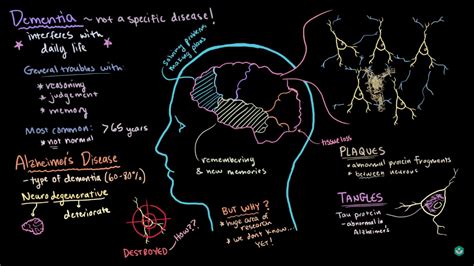 Dementia ~ not a specific disease!
* interferes with
daily life
General troubles with:
* reasoning
* judgement
* memory
Most common: >65 years
* not normal
Alzheimer's Disease
- type of dementia (60-80%)
Neurodegenerative
↳ deteriorate
DESTROYED
How??
solving problems
making plans
remembering
& new memories
BUT WHY?
* huge area of
research
* we don't know...
YET!
tissue loss
PLAQUES
* abnormal protein fragments
* between neurons
TANGLES
Tau protein
- abnormal in
Alzheimer's